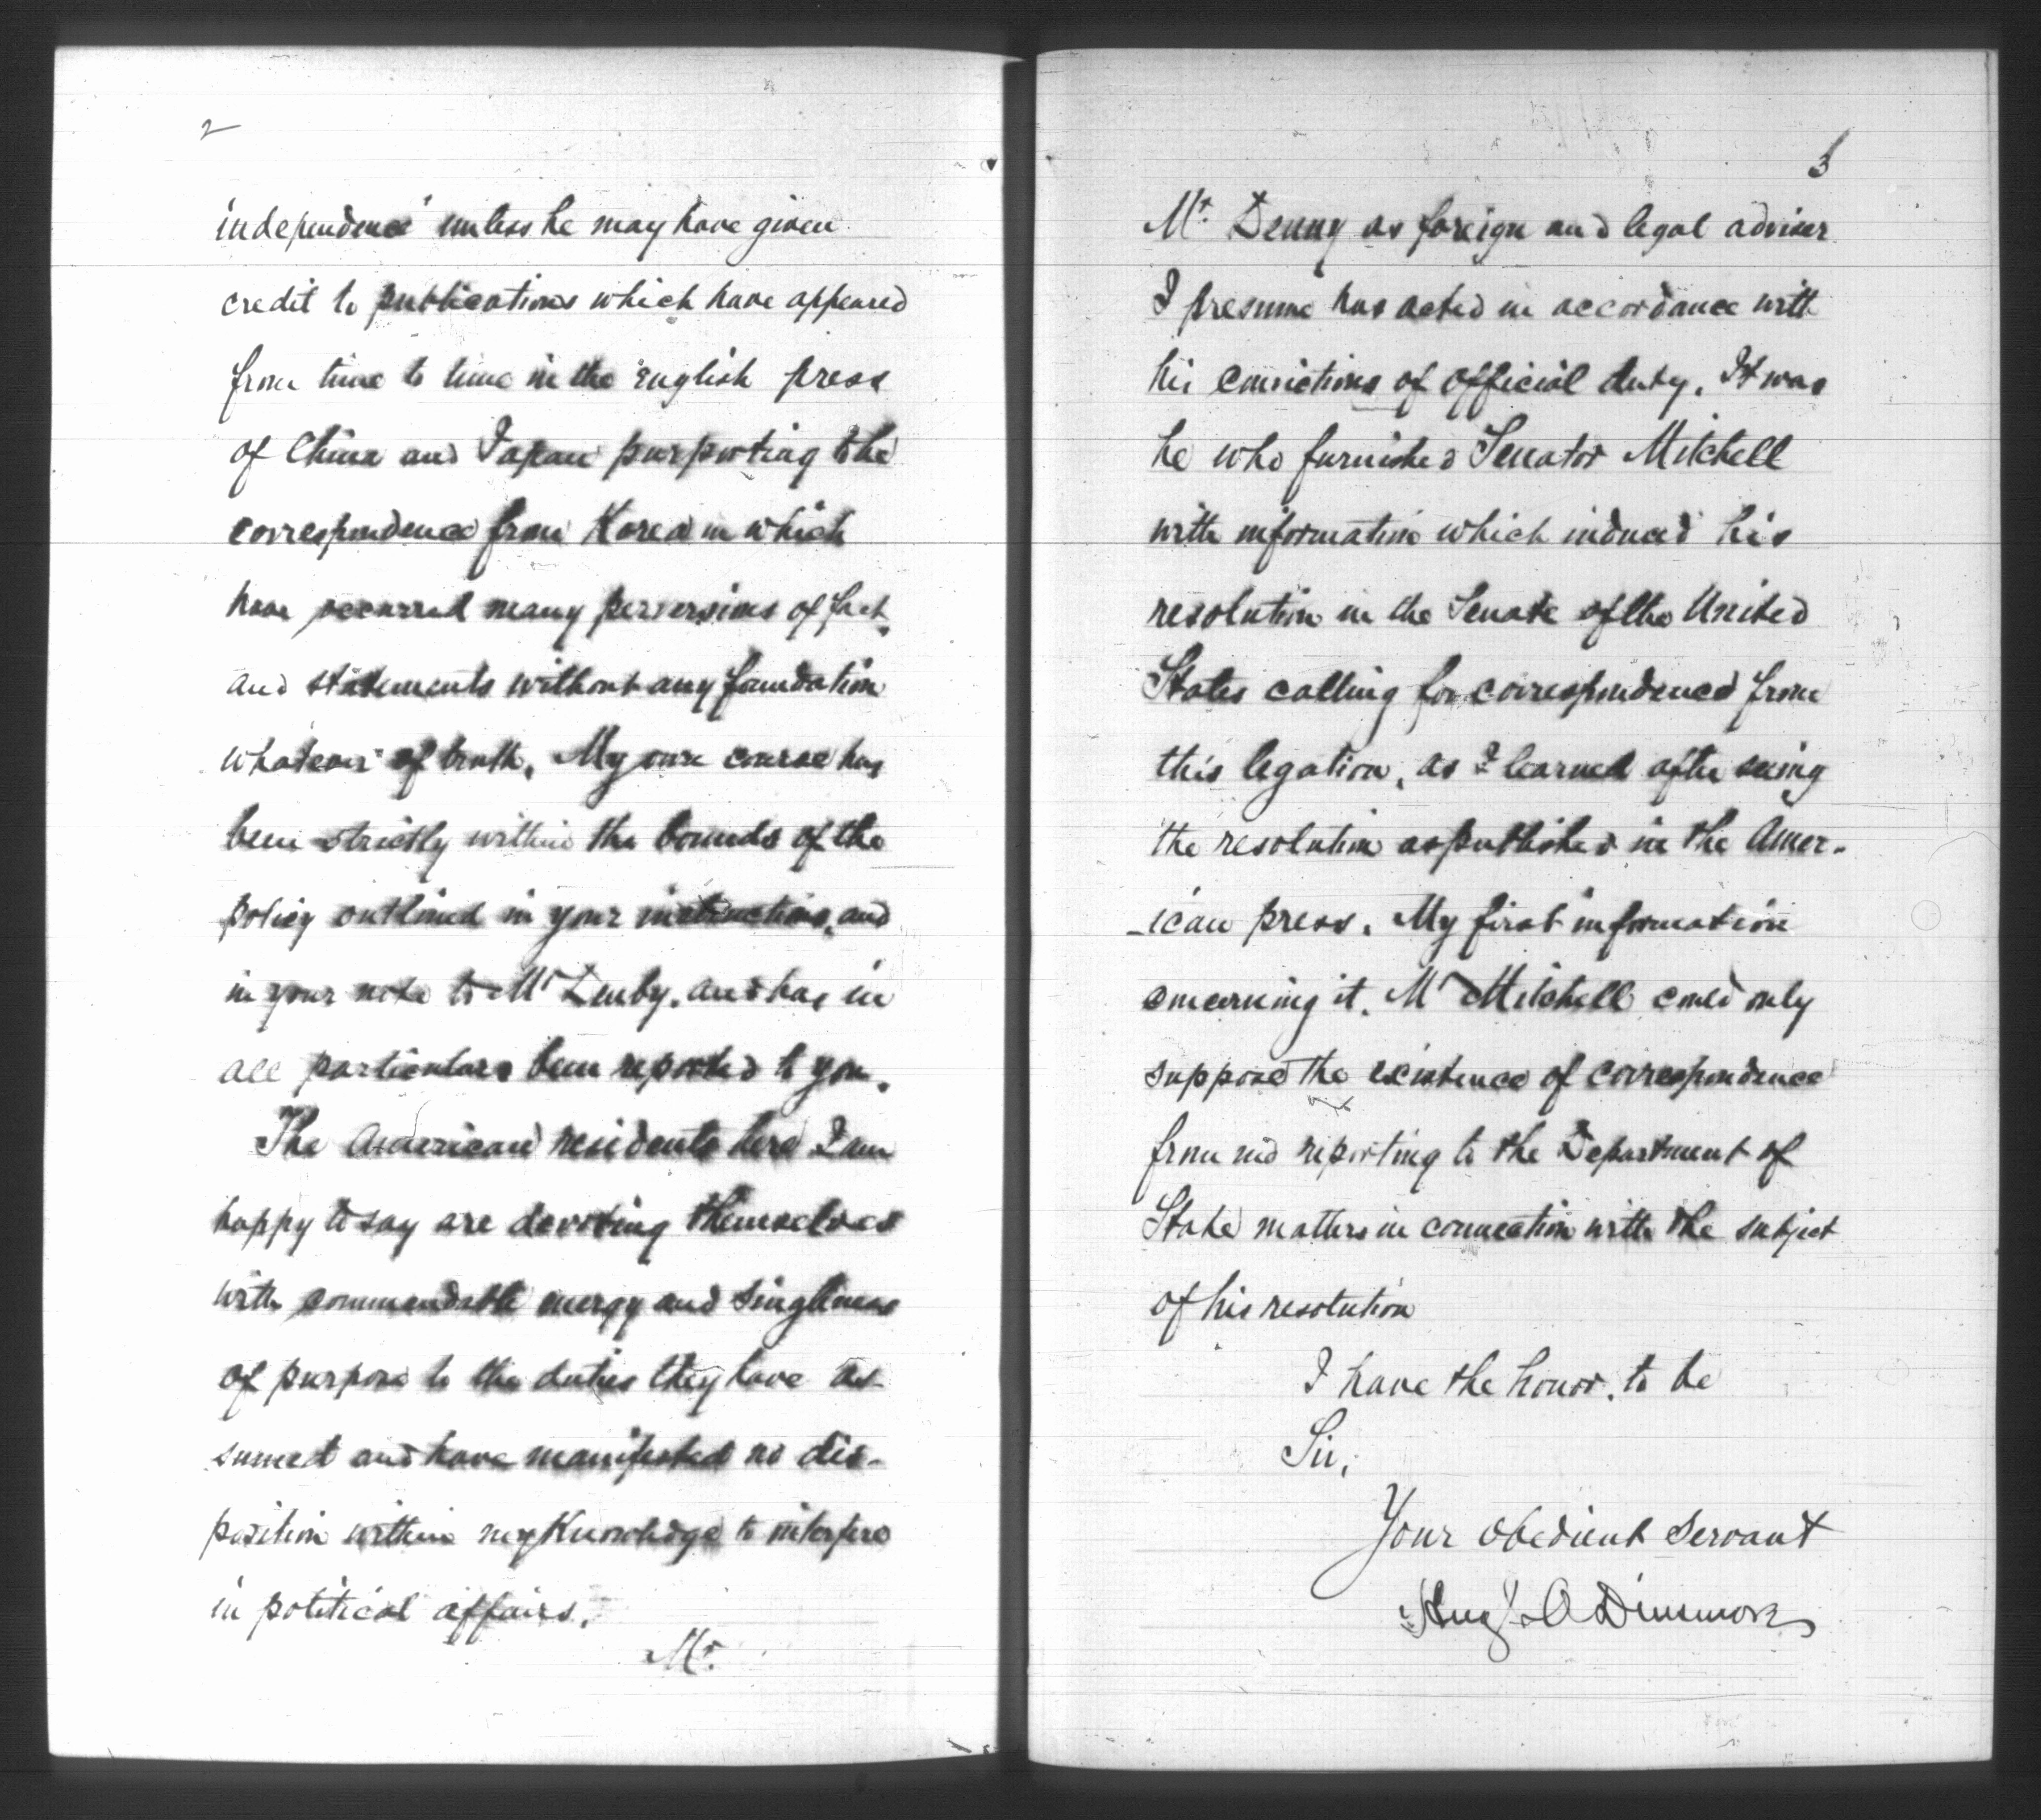 2
independence" unless he may have given
credit to publications which have appeared
from time to time in the English press
of China and Japan purporting to be
correspondence from Korea in which
have occurred many perversions of fact,
and statements without any foundation
whatever of truth. My own course has
been strictly within the bounds of the
policy outlined in your instructions, and
in your note to Mr Denby, and has in
all particulars been reported to you.
The American residents here I am
happy to say are devoting themselves
with commendable energy and singleness
of purpose to the duties they have as-
sumed and have manifested no dis-
position within my knowledge to interfere
in political affairs.
Mr.
3
Mr. Denny as foreign and legal adviser
I presume has acted in accordance with
his convictions of official duty. It was
he who furnished Senator Mitchell
with information which induced his
resolution in the Senate of the United
States calling for correspondence from
this legation, as I learned after seeing
the resolution as published in the Amer-
-ican press. My first information
concerning it. Mr Mitchell could only
suppose the existence of correspondence
from me reporting to the Department of
State matters in connection with the subject
of his resolution
I have the honor, to be
Sir,
Your obedient servant
Hugh A Dinsmore